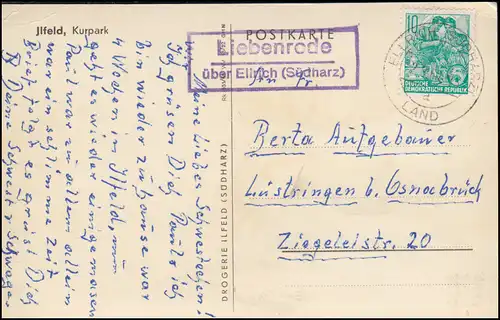 Jlfeld, Kurpark
POSTKARTE
Liebenrode
über Ellrich (Südharz)
10
DEUTSCHE
DEMOKRATISCHE REPUBLIK
ELLRICH
LAND
Meine liebes Schwesterchen!
Wir grüsen Dich Paul u. ich
bin wieder zuhause war
4 Wochen in Ilfeld, nun
geht es wieder einigermasen
Paul war zu allem allein
war ein schlimme Zeit
Brief folgt es grüst Dich
Deine Schwest u. Schwager
DROGERIE ILFELD (SÜDHARZ)
An Fr.
Berta Aufgebauer
Lüstringen b. Osnabrück
Ziegeleistr. 20